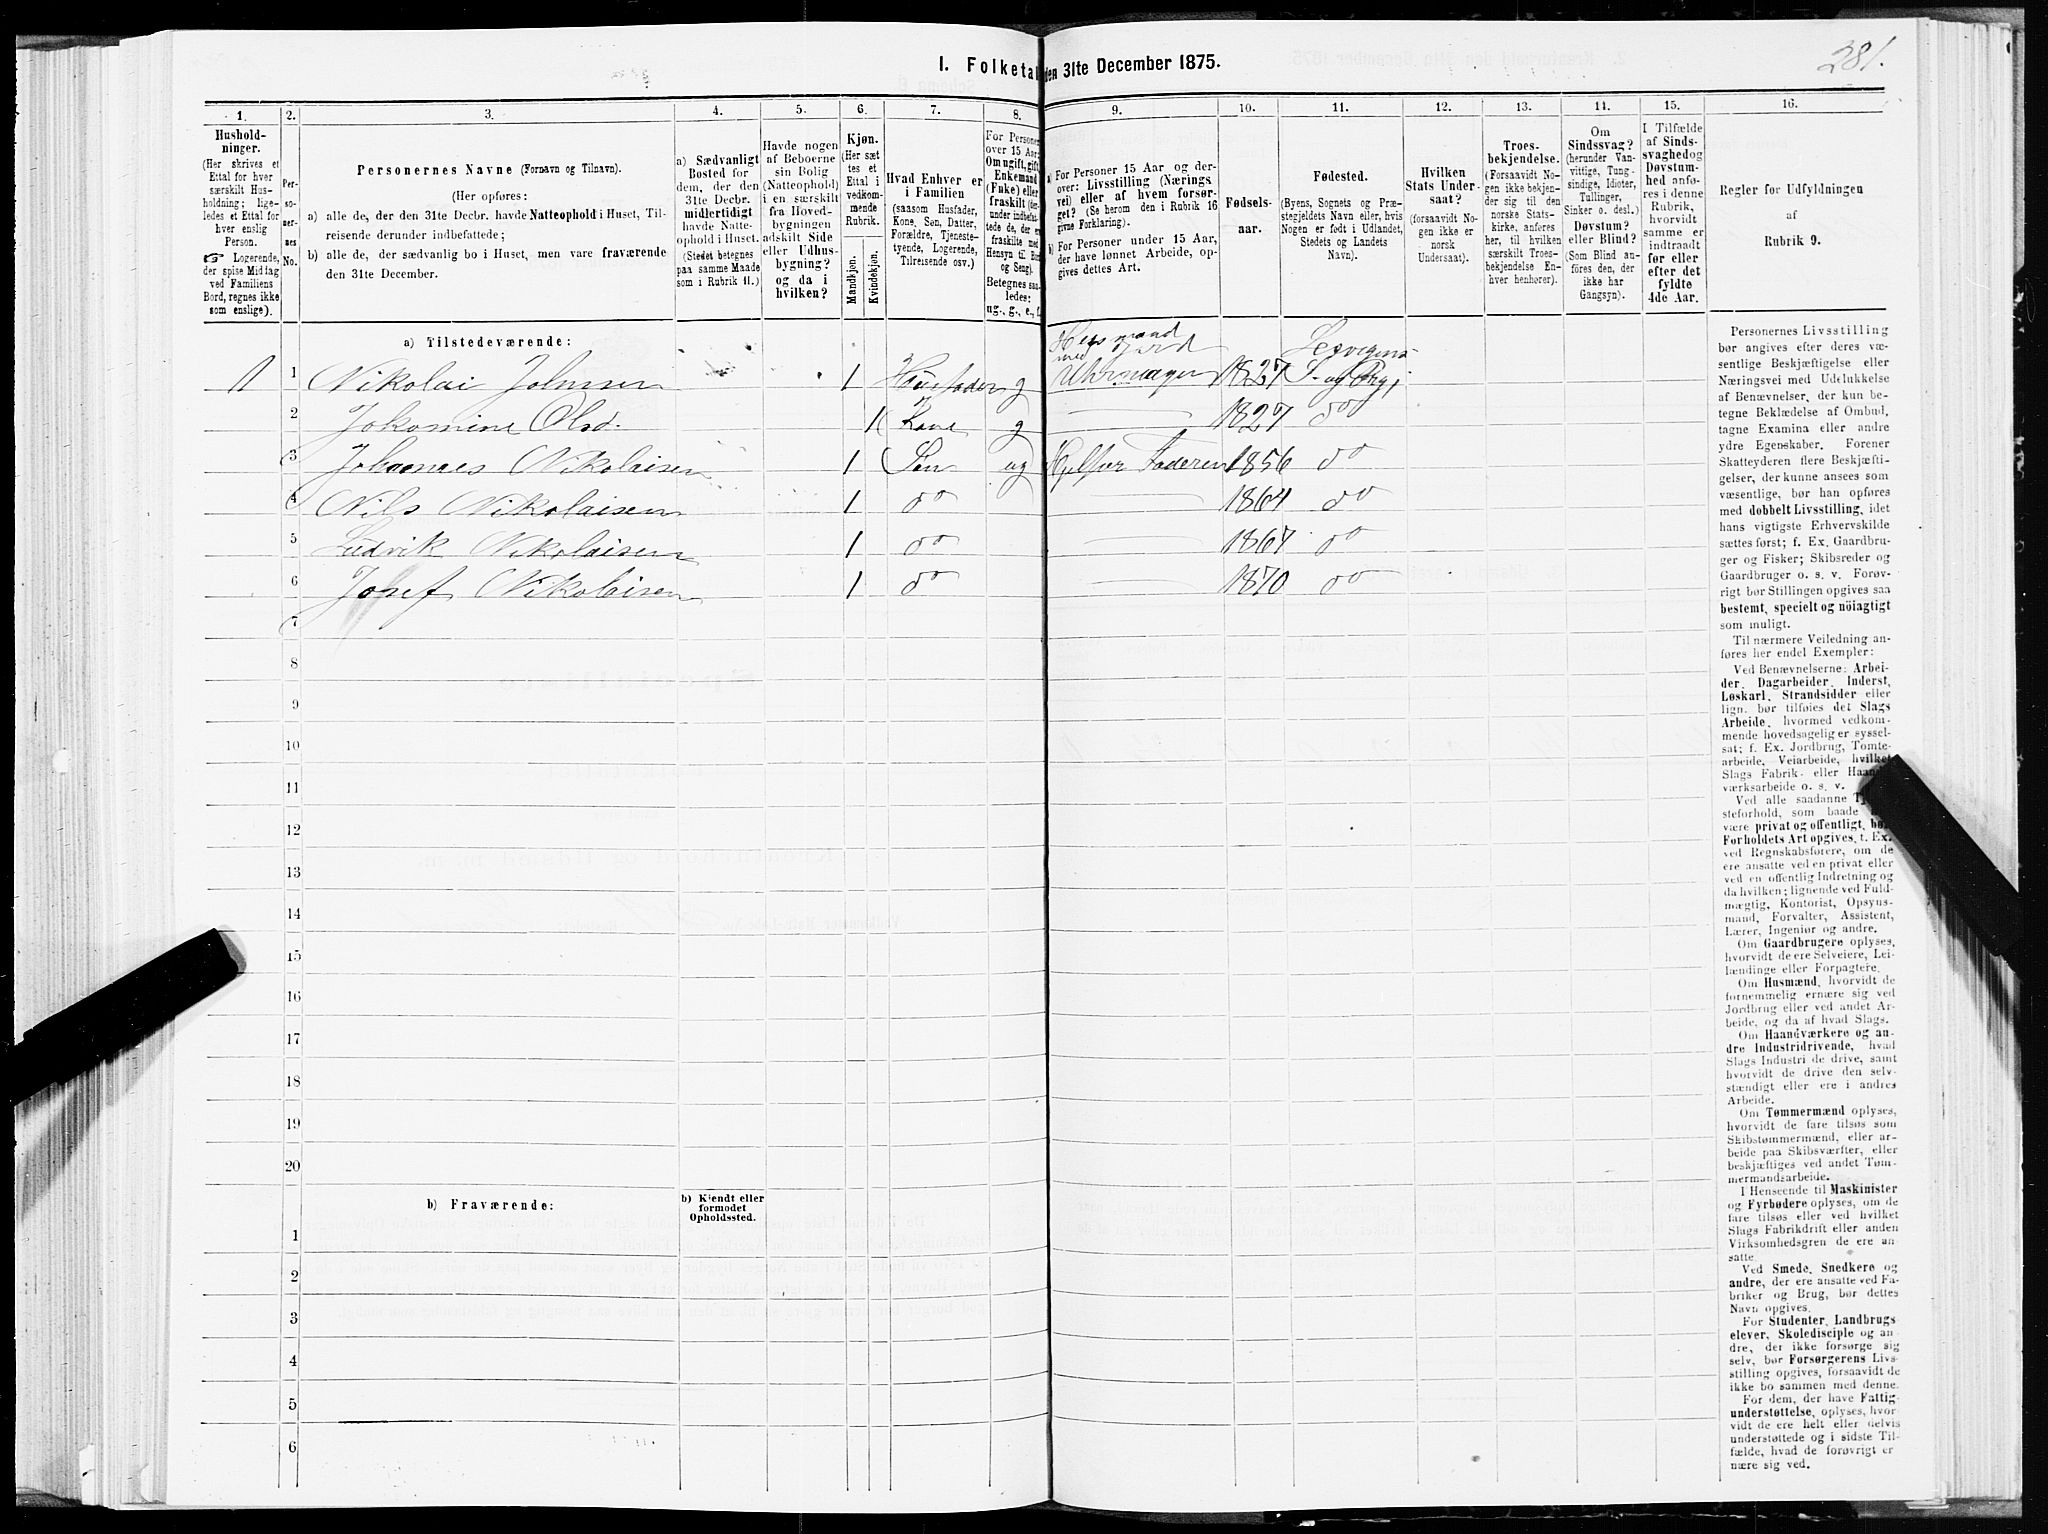 I. Folketal den 31te December 1875.
281.
1.
Hushold-
ninger.
(Her skrives et
Ettal for hver
særskilt Hus-
holdning; lige-
ledes et Ettal for
hver enslig
Person.
☞ Logerende,
der spise Middag
ved Familiens
Bord, regnes ikke
som enslige).
2.
Per-
so-
ner-
nes
No.
3.
Personernes Navne (Fornavn og Tilnavn).
(Her opføres:
a) alle de, der den 31te Decbr. havde Natteophold i Huset, Til-
reisende derunder indbefattede;
b) alle de, der sædvanlig bo i Huset, men vare fraværende
den 31te December.
4.
a) Sædvanligt
Bosted for
dem, der den
31te Decbr.
midlertidigt
havde Natte-
ophold i Huset.
(Stedet betegnes
paa samme Maade
som i Rubrik 11.)
5.
Havde nogen
af Beboerne
sin Bolig
(Natteophold)
i en særskilt
fra Hoved-
bygningen
adskilt Side
eller Udhus-
bygning?
og da i
hvilken?
6.
Kjøn.
(Her sæt
tes et
Ettal i
vedkom-
mende
Rubrik.
Mandkjøn.
Kvindekjøn.
7.
Hvad Enhver er
i Familien
(saasom Husfader,
Kone, Søn, Datter,
Forældre, Tjeneste-
tyende, Logerende,
Tilreisende osv.)
8.
For Personer
over 15 Aar:
Om ugift, gift,
Enkemand
(Enke) eller
fraskilt (der-
under indbefat-
tede de, der ere
fraskilte med
Hensyn til Bord
og Seng).
Betegnes saa-
ledes:
ug., g., e., f.
9.
a) For Personer 15 Aar og der-
over: Livsstilling (Nærings
vei) eller af hvem forsør-
get? (Se herom den i Rubrik 16
givne Forklaring).
b) For Personer under 15 Aar,
der have lønnet Arbeide, op-
gives dettes Art.
10.
Fødsels-
aar.
11.
Fødested.
(Byens, Sognets og Præ-
stegjeldets Navn eller, hvis
Nogen er født i Udlandet,
Stedets og Landets
Navn).
12.
Hvilken
Stats Under-
saat?
(forsaavidt No-
gen ikke er
norsk
Undersaat).
13.
Troes-
bekjendelse.
(Forsaavidt No-
gen ikke bekjen-
der sig til den
norske Stats-
kirke, anføres
her, til hvilken
særskilt Troes-
bekjendelse En-
hver henhører).
11.
Om
Sindssvag?
(herunder Van-
vittige, Tung-
sindige, Idioter,
Tullinger,
Sinker o. desl.)
Døvstum?
eller Blind?
(Som Blind an-
føres den, der
ikke har
Gangsyn).
15.
I Tilfælde
af Sinds-
svaghed og
Døvstum-
hed anfø-
res i denne
Rubrik,
hvorvidt
samme er
indtraadt
før eller
efter det
fyldte
4de Aar.
16.
Regler for Udfyldningen
af
Rubrik 9.
a) Tilstedeværende:
Husmand
med Jord
1 1 Nikolai Johnsen 1 Husfader g Uhrmager 1827 S. og Prgj
2 Jokomine Olsd. 1 Kone g 1827 do
3 Johannes Nikolaisen 1 Søn ug Hjelper Faderen 1856 do
4 Nils Nikolaisen 1 do 1864 do
5 Ludvik Nikolaisen 1 do 1867 do
6 Josef Nikolaisen 1 do 1870 do
7
8
9
10
11
12
13
14
15
16
17
18
19
20
b) Fraværende:
b) Kjendt eller
formodet
Opholdssted.
1
2
3
4
5
6
Personernes Livsstilling
bør angives efter deres væ-
sentlige Beskjæftigelse eller
Næringsvei med Udelukkelse
af Benævnelser, der kun be-
tegne Beklædelse af Ombud,
tagne Examina eller andre
ydre Egenskaber. Forener
Skatteyderen flere Beskjæfti-
gelser, der kunne ansees som
væsentlige, bør han opføres
med dobbelt Livsstilling, idet
hans vigtigste Erhvervskilde
sættes først; f. Ex. Gaardbru-
ger og Fisker; Skibsreder og
Gaardbruger o. s. v. Forøv-
rigt bør Stillingen opgives saa
bestemt, specielt og nöiagtigt
som muligt.
Til nærmere Veiledning an-
føres her endel Exempler:
Ved Benævnelserne: Arbei-
der, Dagarbeider, Inderst,
Løskarl, Strandsidder eller
lign. bør tilføies det Slags
Arbeide, hvormed vedkom-
mende hovedsagelig er syssel-
sat; f. Ex. Jordbrug, Tomte-
arbeide, Veiarbeide, hvilket
Slags Fabrik- eller Haand-
værksarbeide o. s. v.
Ved alle saadanne Tje-
nesteforhold, som baade kunne
være privat og offentligt, bør
Forholdets Art opgives, t. Ex.
ved Regnskabsførere, om de
ere ansatte ved en privat eller
ved en offentlig Indretning og
da hvilken; lignende ved Fuld-
mægtig, Kontorist, Opsyns-
mand, Forvalter, Assistent,
Lærer, Ingeniør og andre.
Om Gaardbrugere oplyses,
hvorvidt de ere Selveiere, Lei-
lændinge eller Forpagtere.
Om Husmænd, hvorvidt de
fornemmelig ernære sig ved
Jordbrug eller ved andet Ar-
beide, og da af hvad Slags.
Om Haandværkere og an-
dre Industridrivende, hvad
Slags Industri de drive, samt
hvorvidt de drive den selv-
stændigt eller ere i andres
Arbeide.
Om Tømmermænd oplyses,
hvorvidt de fare tilsøs som
Skibstømmermænd, eller ar-
beide paa Skibsværfter, eller
beskjæftiges ved andet Tøm-
mermandsarbeide.
I Henseende til Maskinister
og Fyrbødere oplyses, om de
fare tilsøs eller ved hvilket
Slags Fabrikdrift eller anden
Virksomhedsgren de ere an-
satte.
Ved Smede, Snedkere og
andre, der ere ansatte ved Fa-
briker og Brug, bør dettes
Navn opgives.
For Studenter, Landbrugs-
elever, Skoledisciple og an-
dre, der ikke forsørge sig
selv, bør Forsørgerens Livs-
stilling opgives, forsaavidt de
ikke bo sammen med denne.
For dem, der have Fattig-
understøttelse, oplyses, hvor-
vidt de ere helt eller delvis
understøttede og i sidste Til-
fælde, hvad de forøvrigt er
nære sig ved.